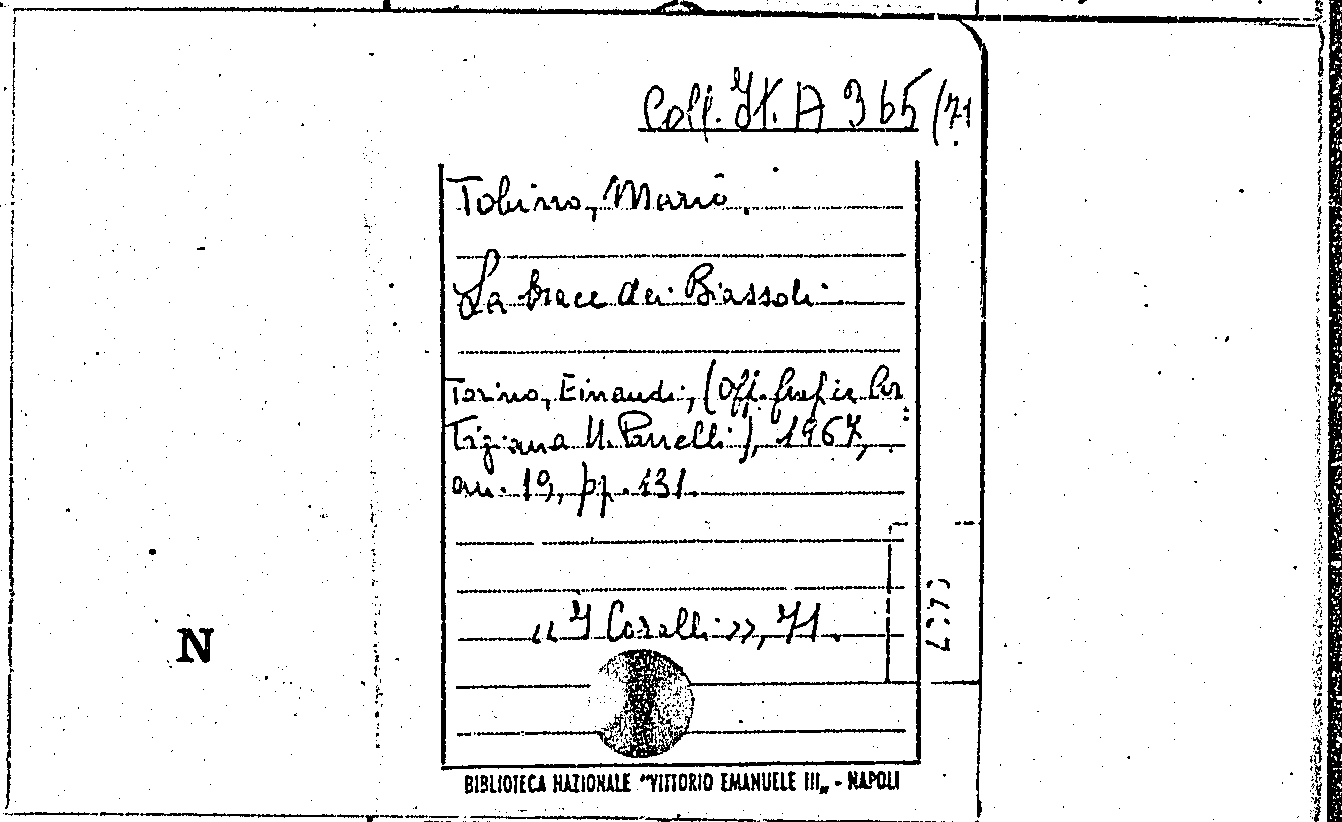 Coll. It. A 365/71
Tobino, Mario.
La brace dei Biassoli.
Torino, Einaudi, (Off. Grafica Ar
tigiana U. Panelli), 1967,
cm. 19, pp. 131.
« I Coralli », 71.
N
BIBLIOTECA NAZIONALE "VITTORIO EMANUELE III„ - NAPOLI